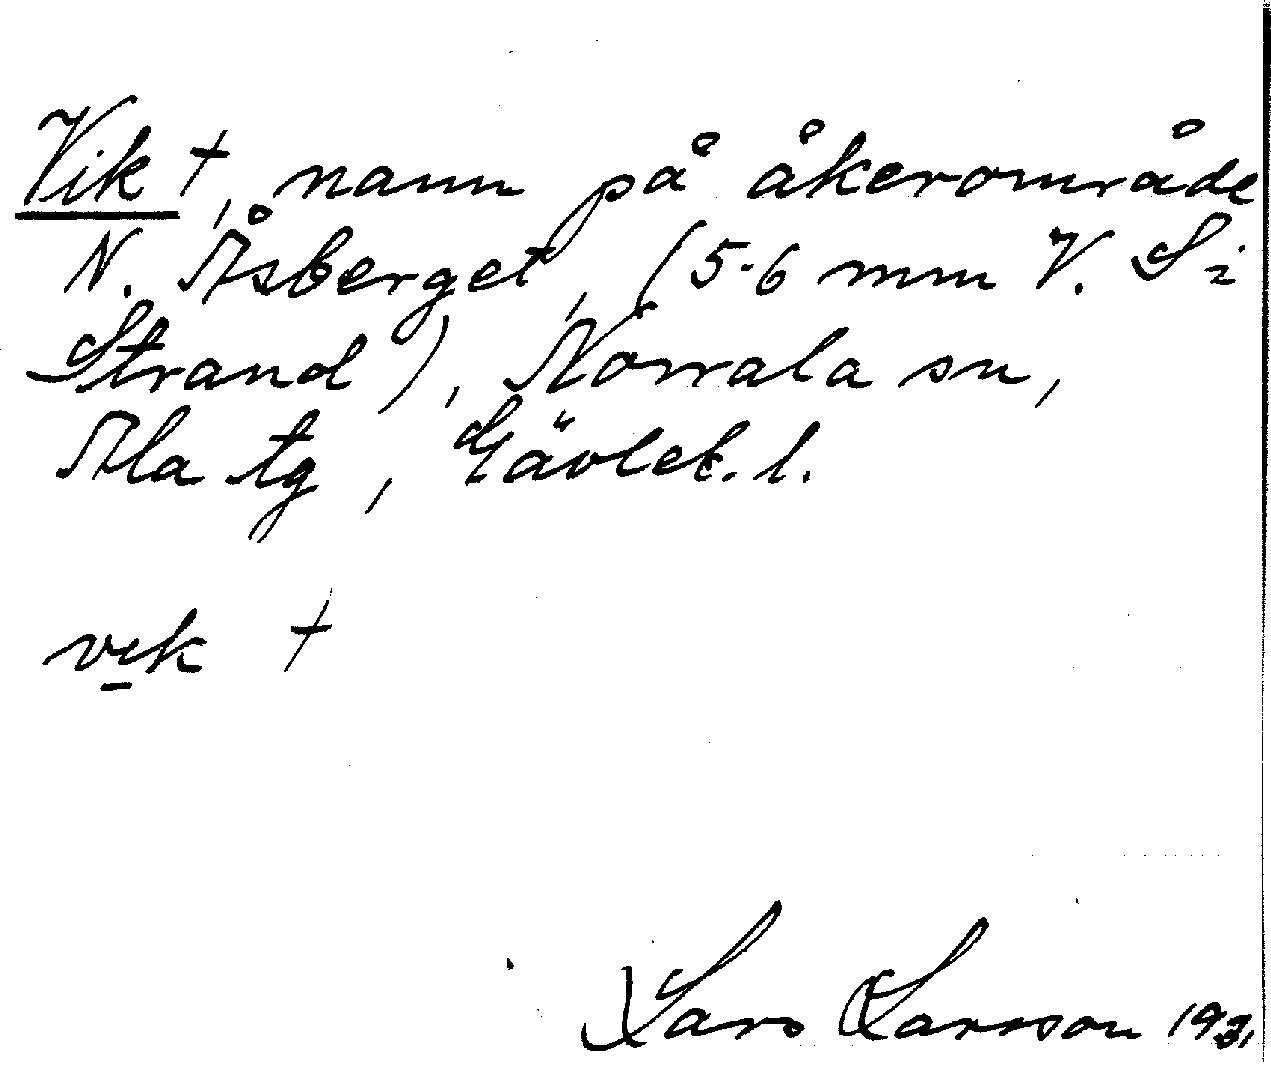 Vik †, namn på åkerområde
N. Åsberget, (5-6 mm V. S i
Strand), Norrala sn,
Ala tg, Gävleb. l.
vik †
Lars Larsson 1931